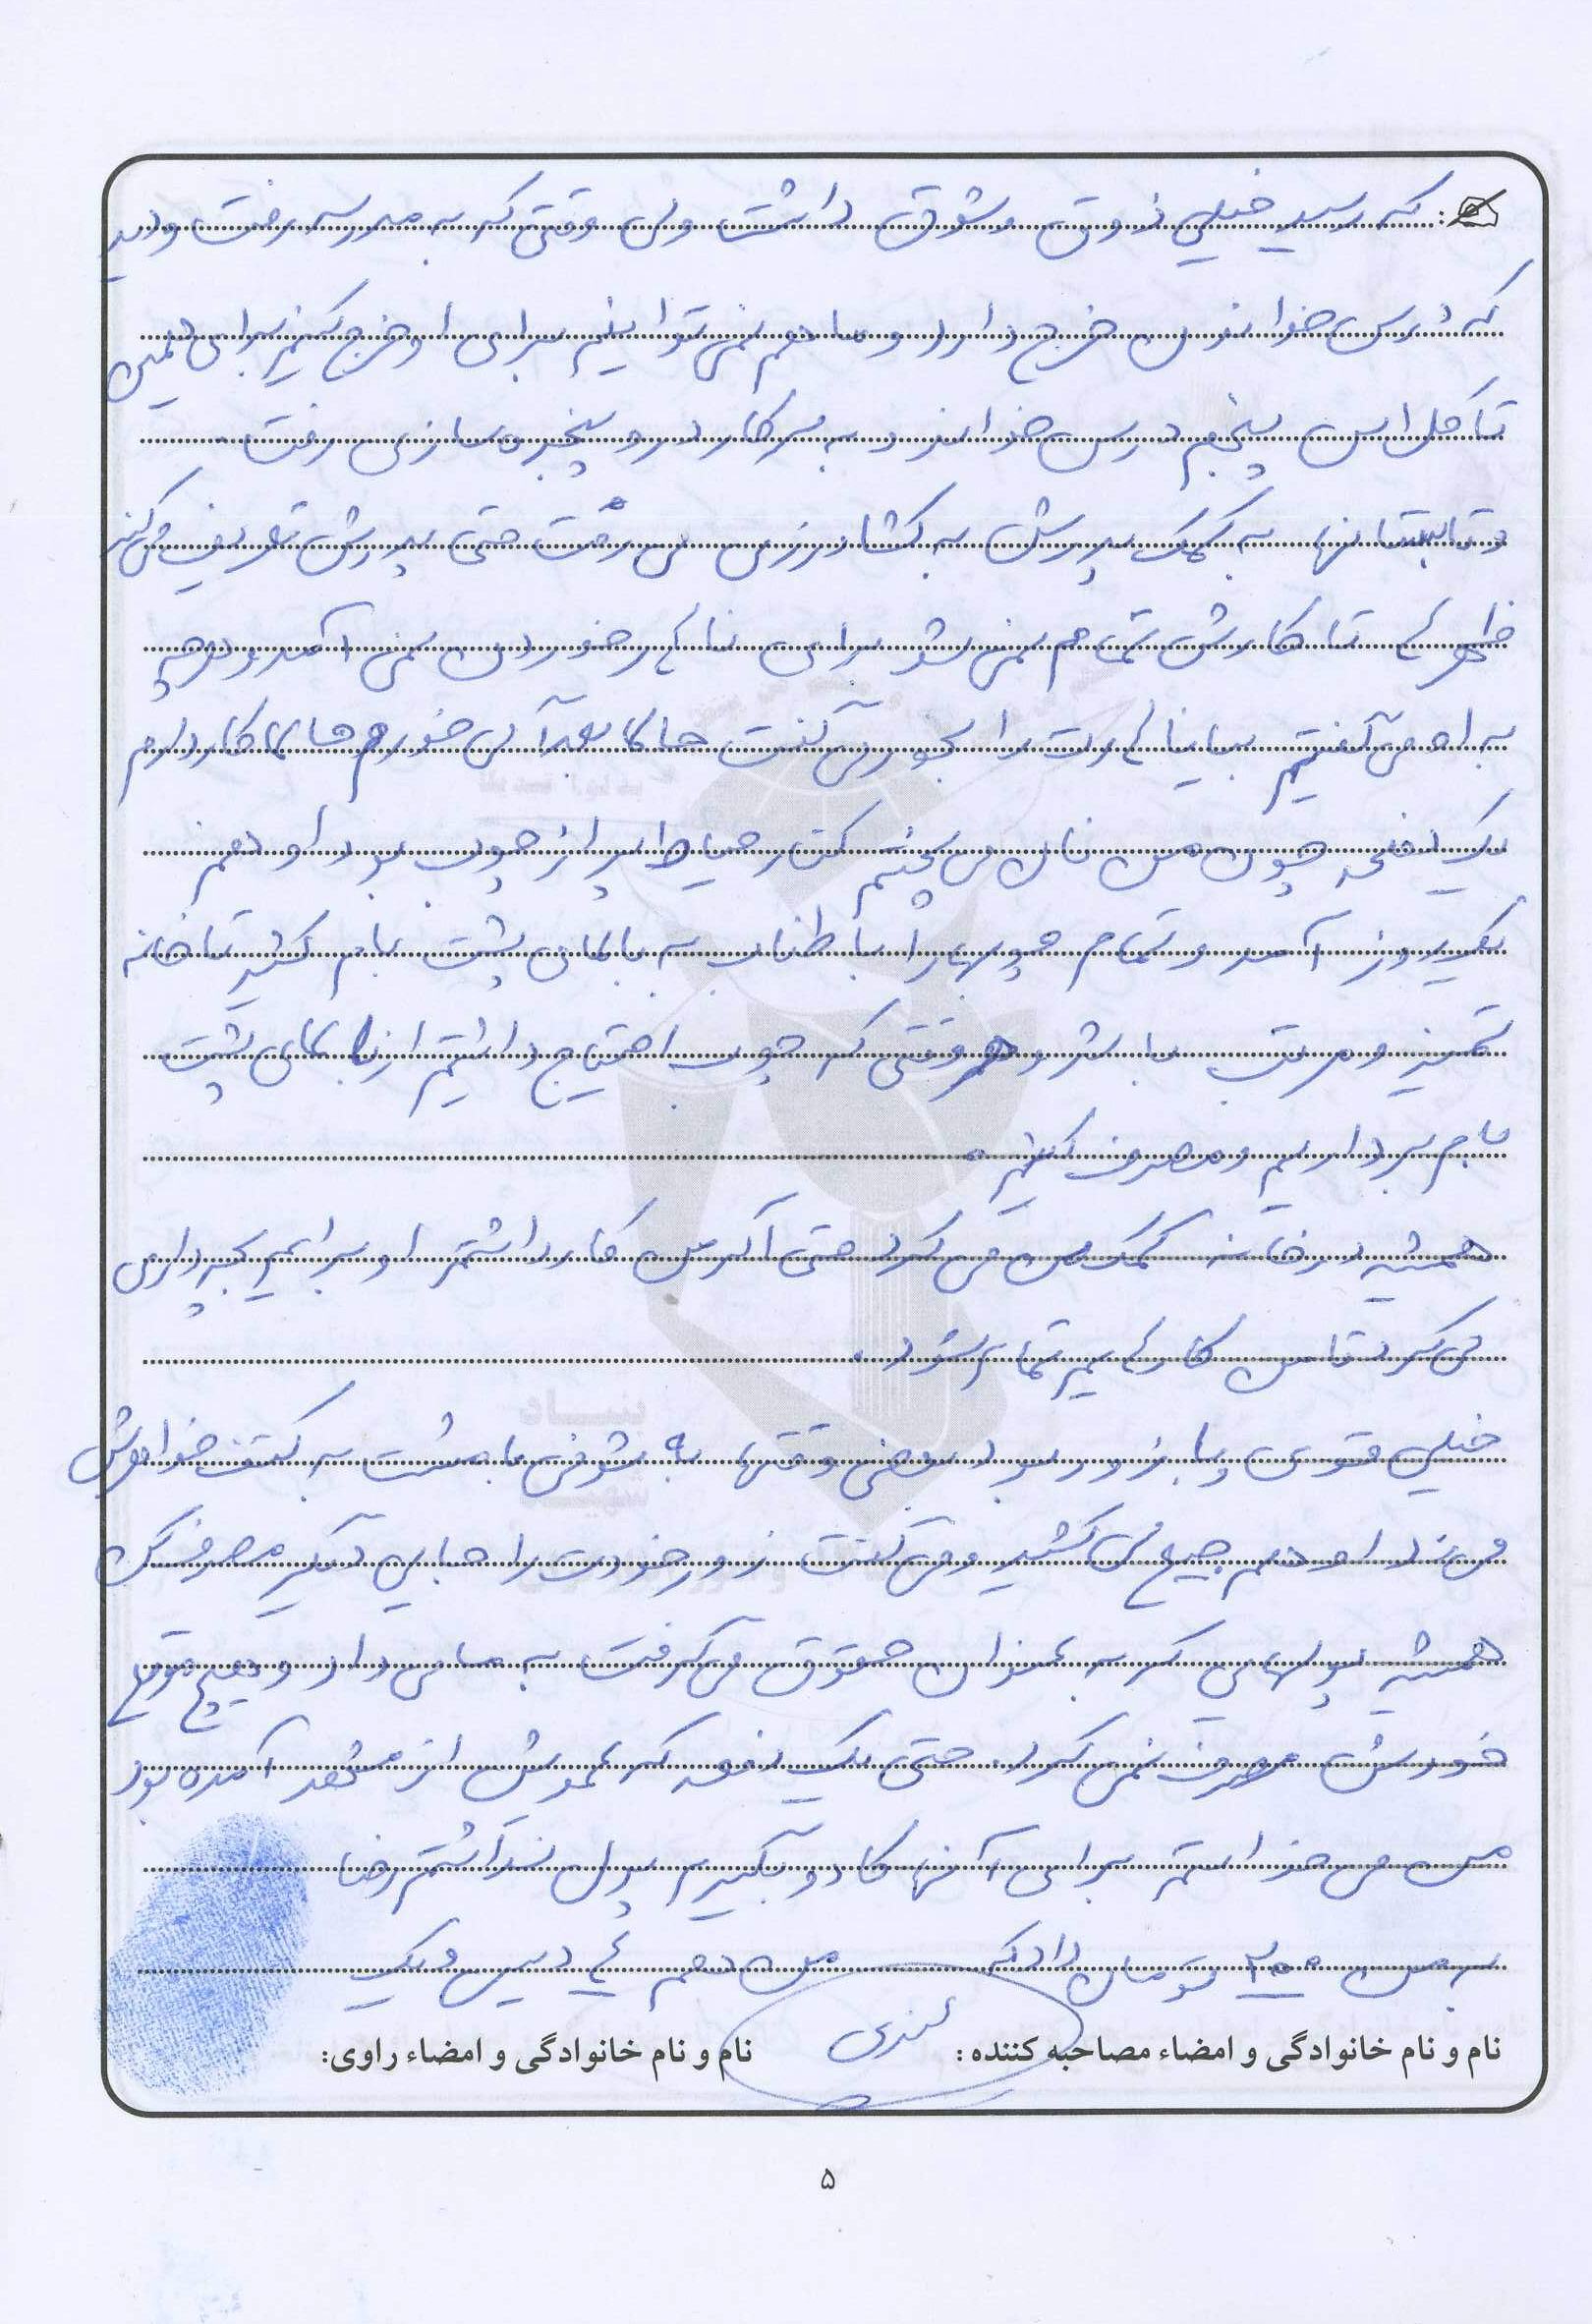 که رسید خیلی ذوق و شوق داشت ولی وقتی که به مدرسه رفت و دید
که درس خواندن خرج دارد و ما هم نمی توانیم برای او خرج کنیم برای همین
تا کلاس پنجم درس خواند و به سر کار در و پنجره سازی رفت.
و تابستانها به کمک پدرش به کشاورزی می رفت حتی پدرش تعریف می کند
ظهر تا کارش تمام نمی شد برای ناهار خوردن نمی آمد و هر چه
به او می گفتیم بیا ناهارت را بخور می گفت حالا بعداً می خورم حالا کار دارم
یک دفعه چون من نان می پختم کنار حیاط پر از چوب بود او هم
یک روز آمد و تمام چوبها را با طناب به بالای پشت بام کشید تا خانه
تمیز و مرتب باشد و هر وقتی که چوب احتیاج داشتیم از بالای پشت
بام برداریم و مصرف کنیم.
همیشه در خانه کمک من می کرد حتی اگر من کار داشتم او برایم بچه داری
می کرد تا من کارهایم تمام شود.
خیلی قوی و با زور بود بعضی وقتها به شوخی با مشت به کتف خواهرش
می زد او هم جیغ می کشید و می گفت زور خودت را جایی دیگر مصرف کن
همیشه پولهایی که به عنوان حقوق می گرفت به ما می داد و هیچ موقع
خودش مصرف نمی کرد. حتی یک دفعه که عمویش از مشهد آمده بود
من می خواستم برای آنها کادو بگیرم پول نداشتم رضا
به من ۲۰۰ تومان داد که من هم دیس و یک
نام و نام خانوادگی و امضاء مصاحبه کننده: نام و نام خانوادگی و امضاء راوی:
۵